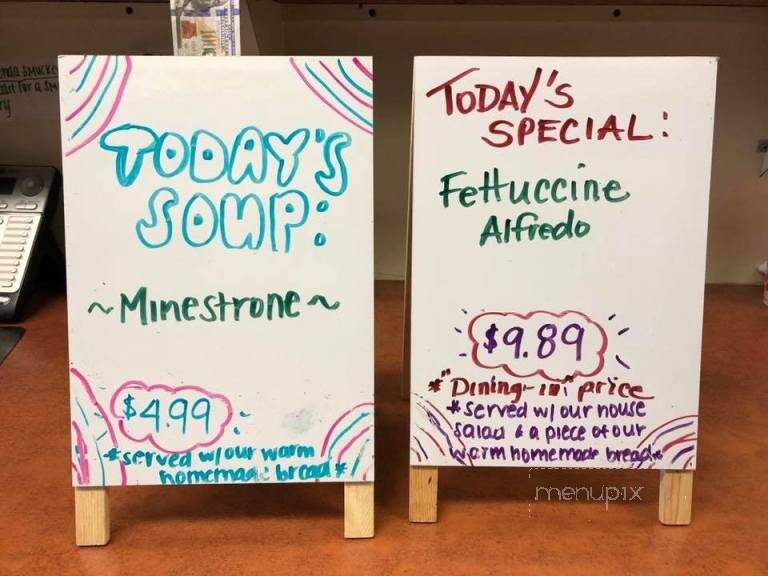 TODAY'S
SOUP:
~Minestrone~
$4.99
*served w/our warm
homemade bread*
TODAY'S
SPECIAL:
Fettuccine
Alfredo
$9.89
*"Dining-in" price
*served w/ our house
salad & a piece of our
warm homemade bread*
menupix